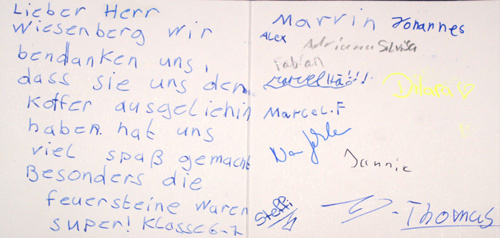 Lieber Herr
Wiesenberg wir
bendanken uns,
dass sie uns den
Koffer ausgeliehin
haben. hat uns
viel spaß gemacht
Besonders die
feuersteine waren
super! Klasse 6-7
Marvin Johannes
Alex
Adriano Silvisa
Fabian
Marcel.F
Jannie
Steffi
-Thomas